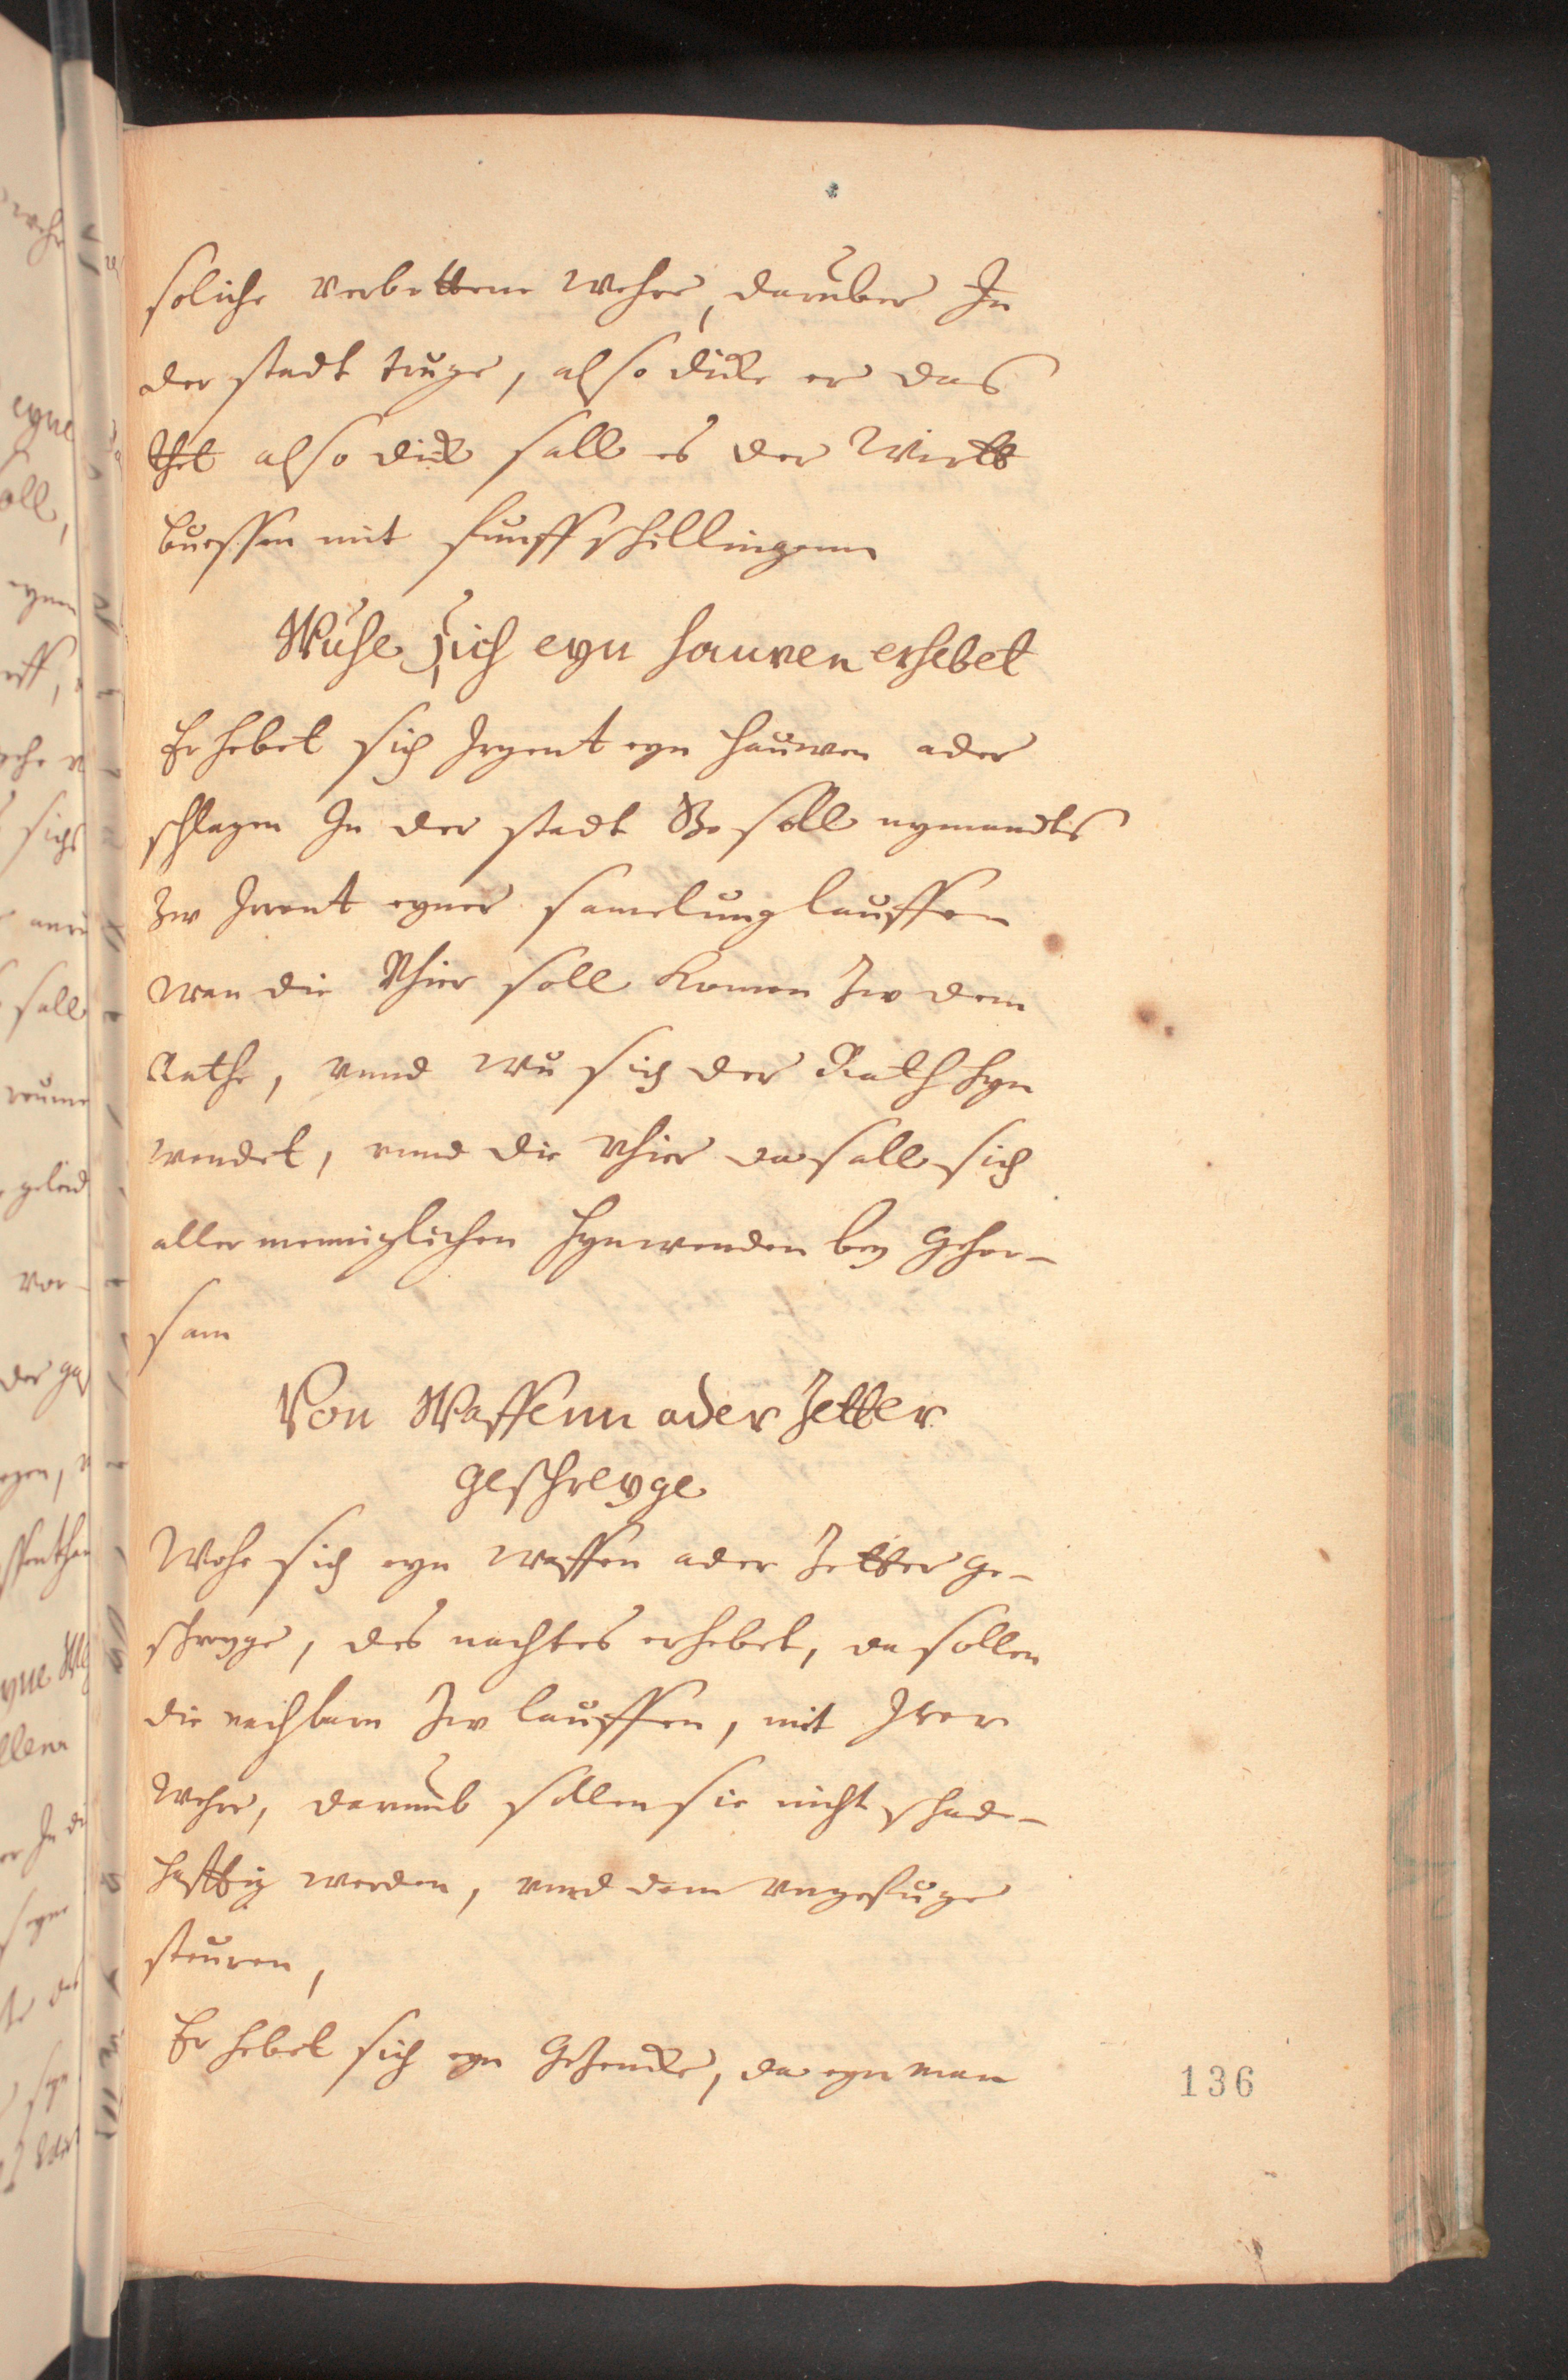 soliche verbottene wehre, daruber In
der stadt truge, also dicke er das
thet also dick soll es der Wirtt
buessen mit funff schillingenn
Wuhe sich eyn hauwen erhebet
Erhebet sich Irgent eyn hauwen ader
schlagen In der stadt So soll nymandts
zw Irent eyner samelung lauffen
wan die Vhier soll komen zw dem
Rathe, vnnd wu sich der Rath hyn
wendet, vnnd die Vhier da soll sich
allermenniglichen hynwenden bey gehor-
sam
Von Waffenn ader Zetter
geschreyge
Wohe sich eyn waffen ader Zetter ge-
schreyge, des nachtes erhebet, da sollen
die nachbarn zw lauffen, mit Irer
wehre, darumb sollen sie nicht schade-
hafftig werden, vnnd dem vngefuge
steuren,
Erhebet sich eyn Gezencke, da eyn man
136